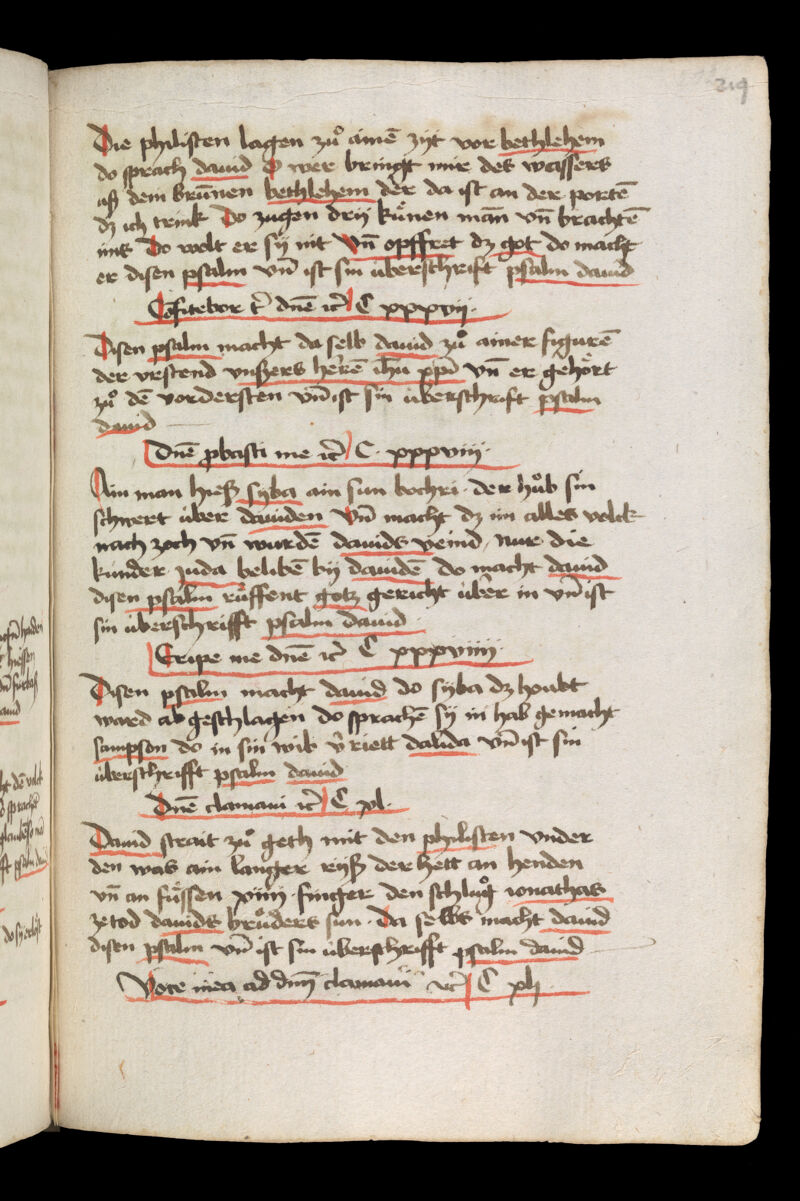 219
Die philisten lagen zuͦ ainē zijt vor bethlehem
do sprach dauid O wer bringt mir des wassers
uß dem brūnen bethlehem der da ist an der portē
dz ich trink Do zugen drij kuͤnen man̄ vn̄ brachtē
ims Do wolt er sij nit Vn̄ opffret dz got do macht
er disen psalm vn̄ ist sin überschrift psalm dauid
Cōfitebor t dnē ꝛc̄ C xxxvij.
Disen psalm macht da selb dauid zuͦ ainer figurē
der vrstend vnßers herrē ih̄u xp̄i vn̄ er gehoͤrt
zuͦ dē vordersten vn̄ ist sin überschrift psalm
dauid
Dnē ꝓbasti me ꝛc̄ C. xxxviij.
Ain man hieß syba ain sun bochri. der huͦb sin
schwert über dauiden vn̄ macht dz im alles volck
nach zoch vn̄ wurdē dauids veind, nur die
kinder juda belibē bij dauidē do macht dauid
disen psalm ruͤffent gotz gericht über in vn̄ ist
sin überschrifft psalm dauid
Eripe me dnē ꝛc̄ C xxxviiij.
Disen psalm macht dauid do syba dz houbt
ward ab geschlagen do sprachē sij in hab gemacht
sampson do in sin wib v̄riett dalida vn̄ ist sin
überschrifft psalm dauid
Dnē clamaui ꝛc̄ C xl.
Dauid strait zuͦ geth mit den philisten vnder
den was ain langer rijß der hett an henden
vn̄ an fuͤssen xxiiij finger den schluͦg ionathas
ze tod dauids bruͦders sun. Da selbs macht dauid
disen psalm vn̄ ist sin überschrifft psalm dauid
Voce mea ad dnm̄ clamaui ꝛc̄ C xlj